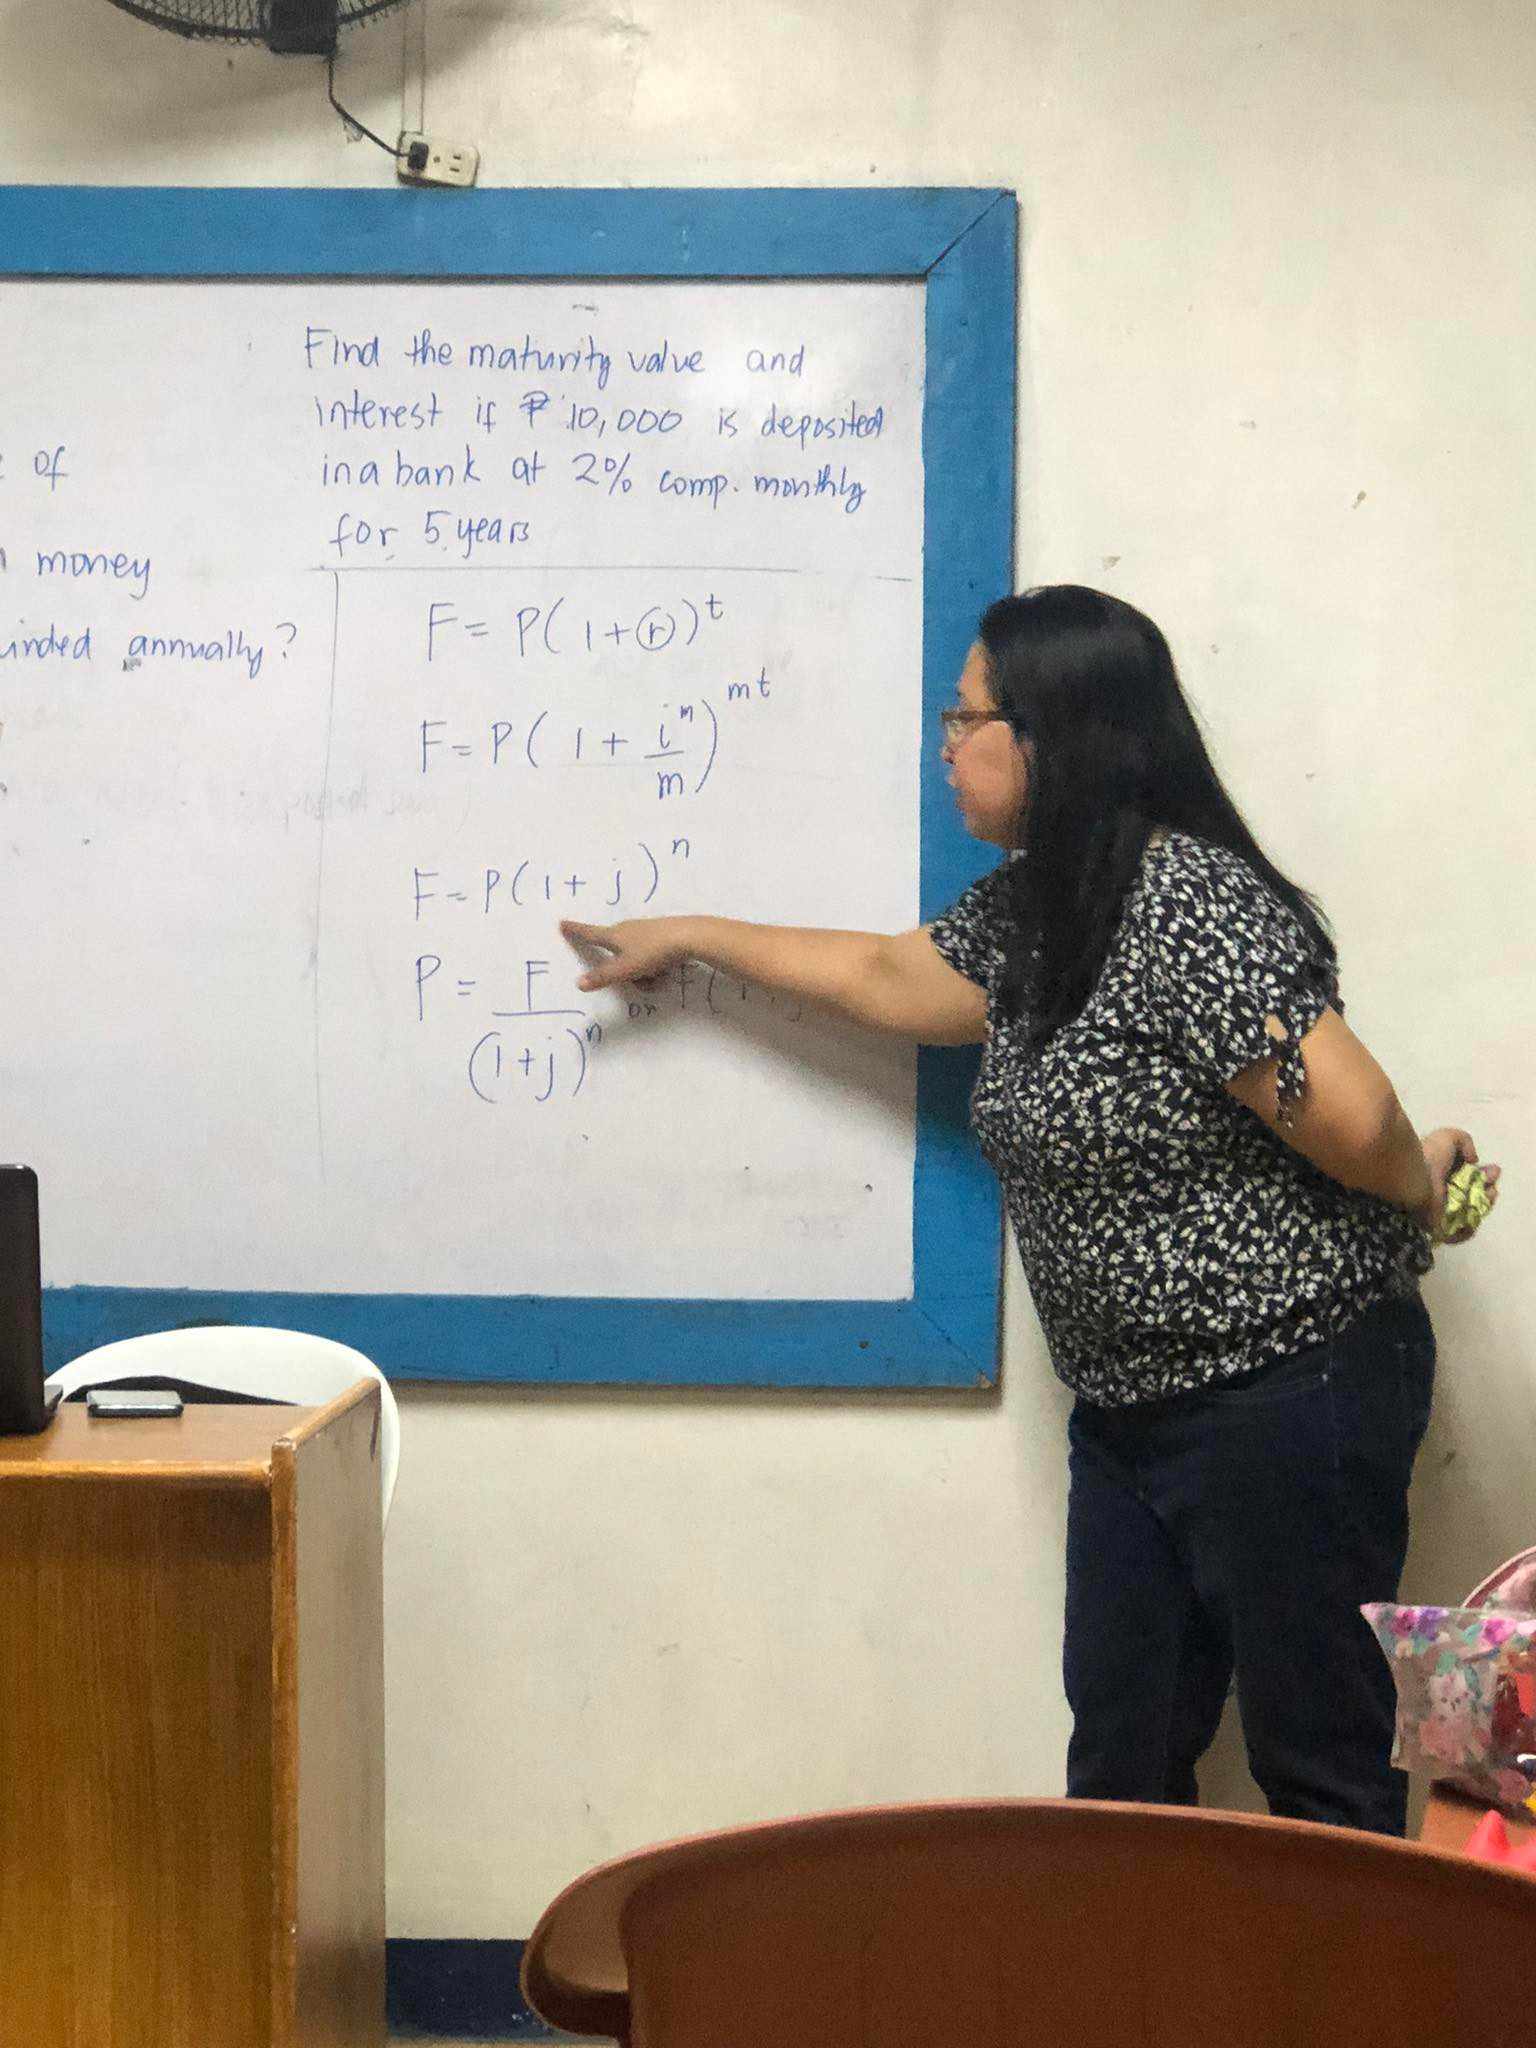 of
money
annually?
Find the maturity value and
interest if ₱ 10,000 is deposited
in a bank at 2% comp. monthly
for 5 years
F = P(1+r)^t
F = P(1 + i^m/m)^mt
F = P(1 + j)^n
P = F/(1+j)^n or F(1